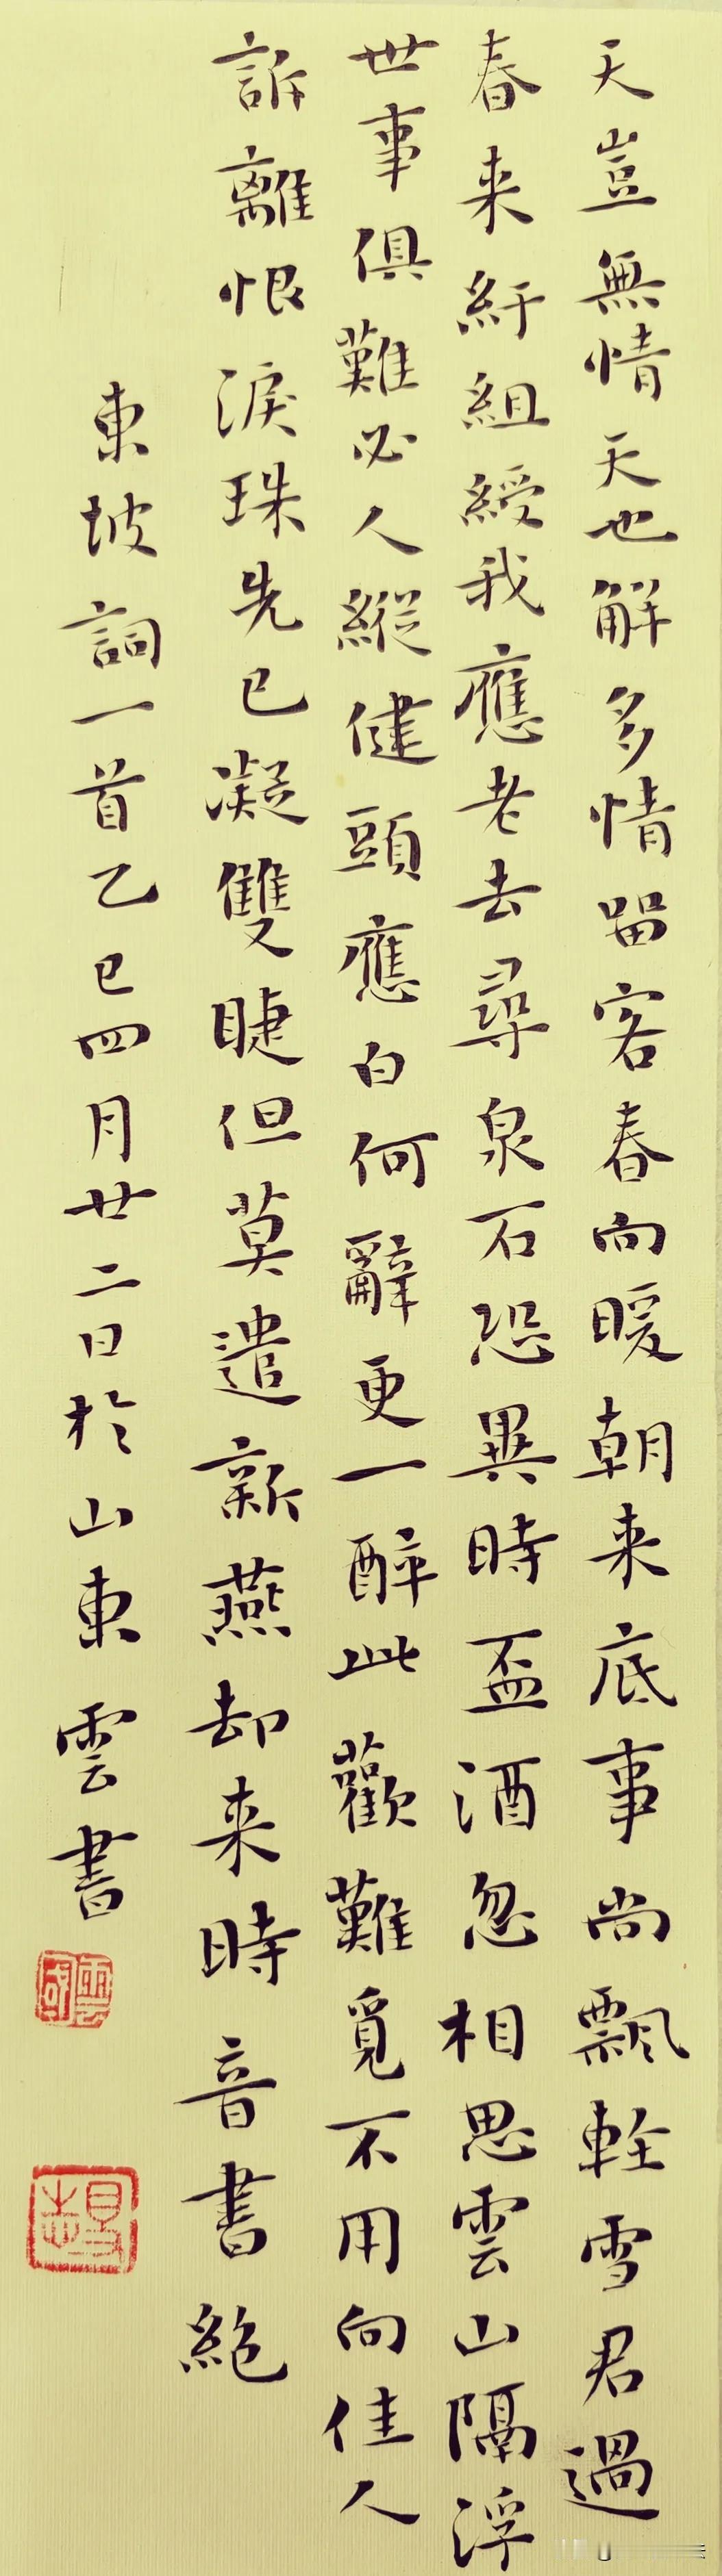 天豈無情天也解多情留客春向暖朝来底事尚飄軽雪君過
春来紆組綬我應老去尋泉石恐異時盃酒忽相思雲山隔浮
世事俱難必人縦健頭應白何辭更一醉此歡難覓不用向佳人
訴離恨淚珠先已凝雙睫但莫遣新燕却来時音書絶
東坡詞一首乙巳四月廿二日於山東雲書